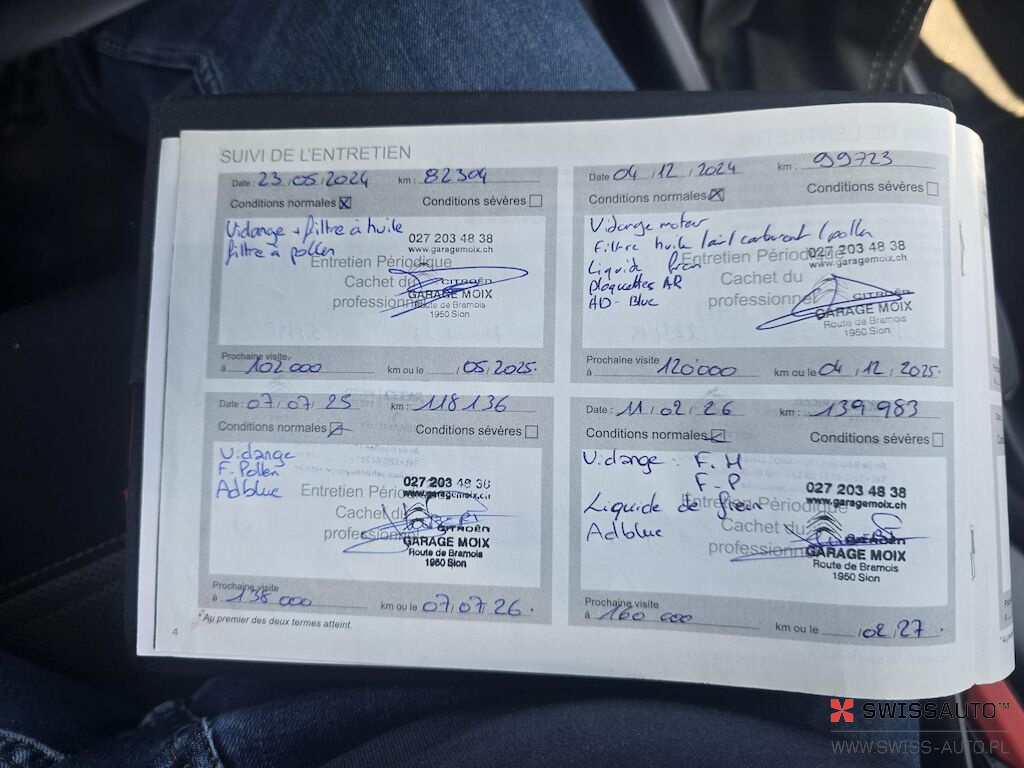 SUIVI DE L'ENTRETIEN
Date : 23/05/2024 km : 82304
Conditions normales Conditions sévères
Vidange + filtre à huile
filtre à pollen
027 203 48 38
www.garagemoix.ch
Entretien Périodique
Cachet du
professionnel
CITROËN
GARAGE MOIX
Route de Bramois
1950 Sion
Prochaine visite
à 102 000 km ou le / 05/2025.
Date : 04/12/2024 km : 99723
Conditions normales Conditions sévères
Vidange moteur
Filtre huile / air / carburant / pollen
Liquide frein
plaquettes AR
AD-Blue
027 203 48 38
www.garagemoix.ch
Entretien Périodique
Cachet du
professionnel
CITROËN
GARAGE MOIX
Route de Bramois
1950 Sion
Prochaine visite
à 120'000 km ou le 04/12/2025.
Date : 07/07/25 km : 118136
Conditions normales Conditions sévères
Vidange
F. Pollen
Adblue
027 203 48 38
www.garagemoix.ch
Entretien Périodique
Cachet du
professionnel
CITROËN
GARAGE MOIX
Route de Bramois
1950 Sion
Prochaine visite
à 138 000 km ou le 07/07/26.
Date : 11/02/26 km : 139 983
Conditions normales Conditions sévères
Vidange : F.H
F-P
Liquide de frein
Adblue
027 203 48 38
www.garagemoix.ch
Entretien Périodique
Cachet du
professionnel
CITROËN
GARAGE MOIX
Route de Bramois
1950 Sion
Prochaine visite
à 160 000 km ou le / 02/27.
* Au premier des deux termes atteint.
4
SWISSAUTO™
WWW.SWISS-AUTO.PL